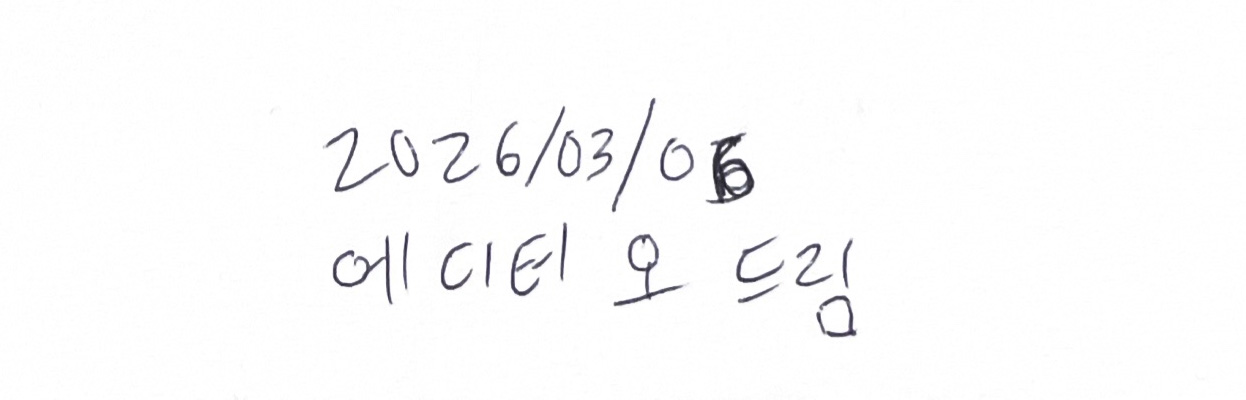 2026/03/06
에디터 오 드림